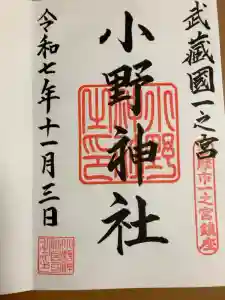 武蔵國一之宮
小野神社
令和七年十一月三日
市一之宮鎮座